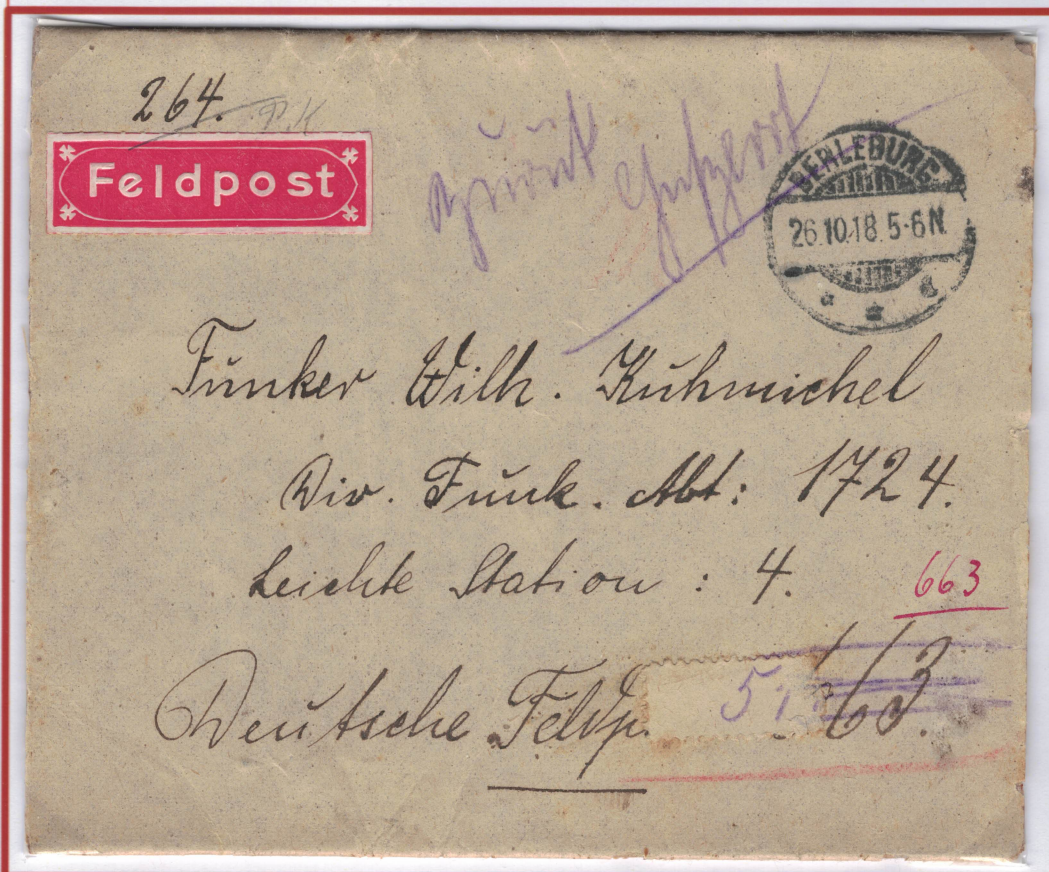 264.
P.K
Feldpost
zurück
BERLEBURG
26.10.18.5-6N.
Funker Wilh. Kuhmichel
Div. Funk. Abt: 1724.
Leichte Station : 4.
663
Deutsche Feldp.
663.